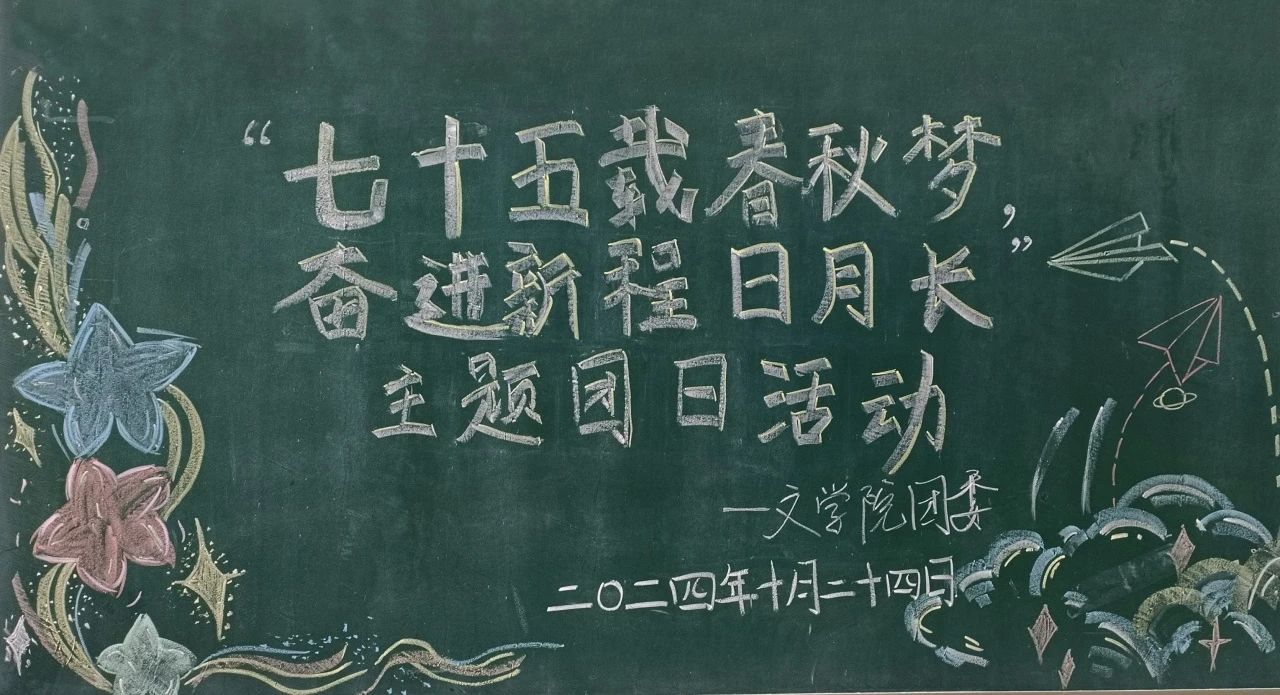 “七十五载春秋梦，
奋进新程日月长”
主题团日活动
—文学院团委
二〇二四年十月二十四日